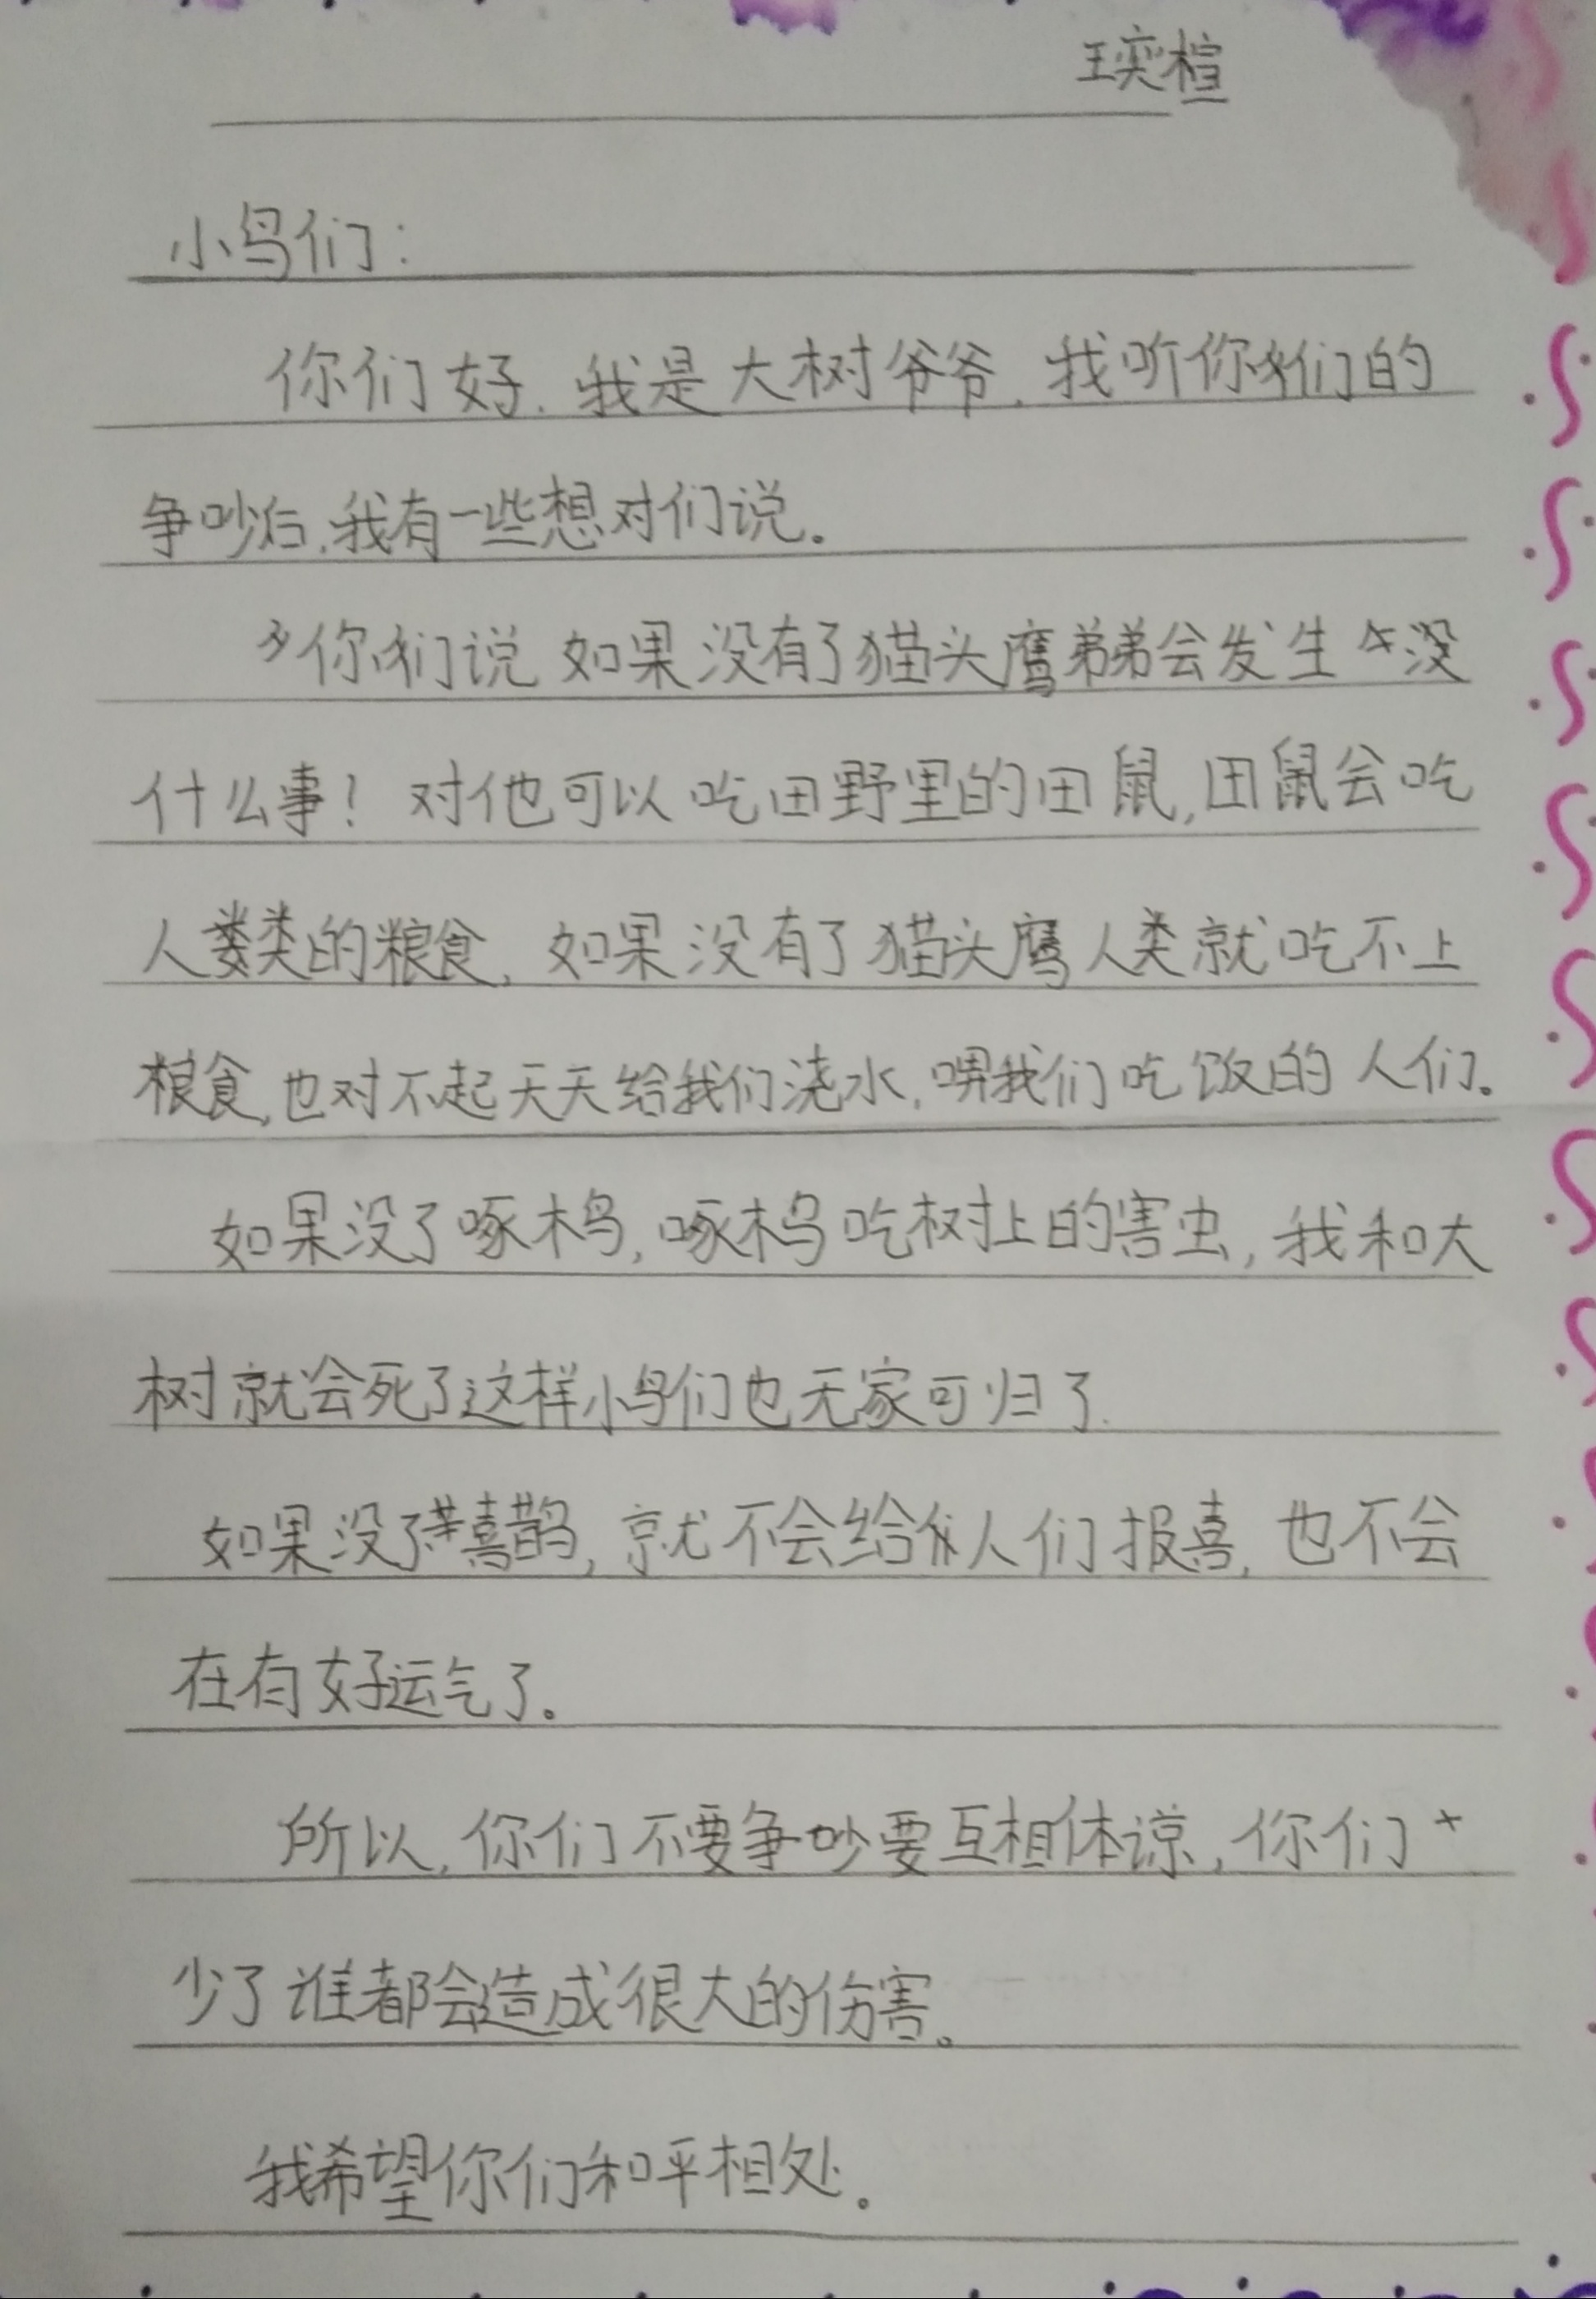 王奕楦
小鸟们：
你们好．我是大树爷爷．我听你们的
争吵后，我有一些想对们说。
你们说 如果没有了猫头鹰弟弟会发生
什么事！对他可以吃田野里的田鼠，田鼠会吃
人类的粮食，如果没有了猫头鹰人类就吃不上
粮食，也对不起天天给我们浇水，喂我们吃饭的人们。
如果没了啄木鸟，啄木鸟吃树上的害虫，我和大
树就会死了这样小鸟们也无家可归了．
如果没了喜鹊，就不会给人们报喜，也不会
在有好运气了。
所以，你们不要争吵要互相体谅，你们
少了谁都会造成很大的伤害。
我希望你们和平相处。